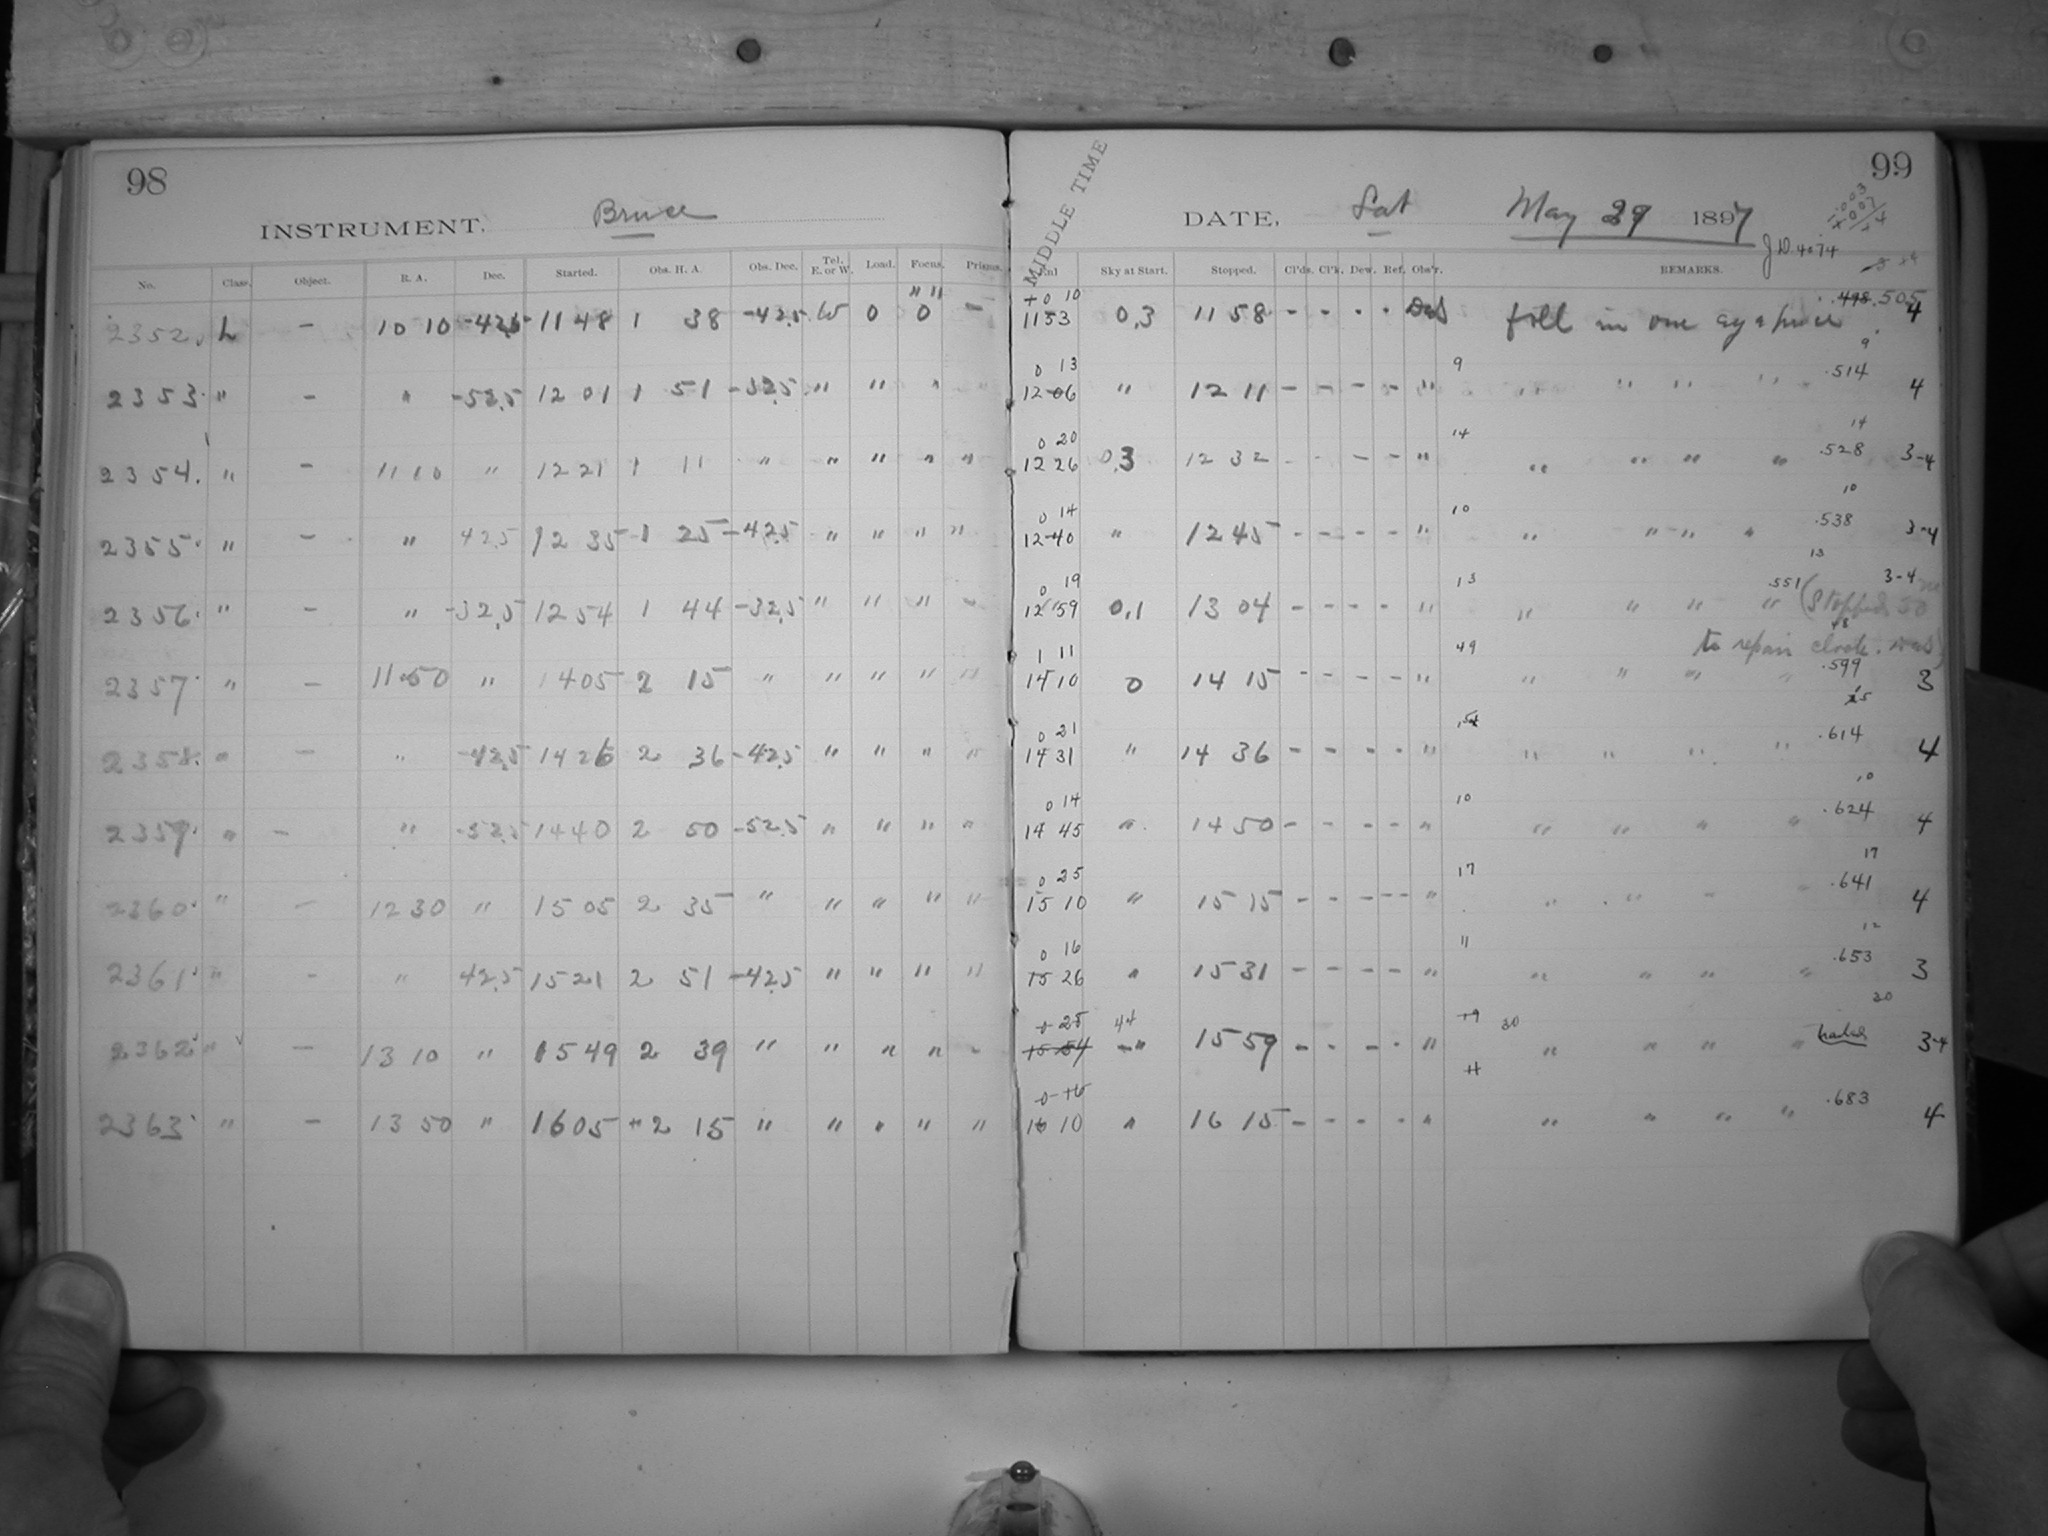 98
INSTRUMENT. Bruce
No. Class. Object. R. A. Dec. Started. Obs. H. A. Obs. Dec. Tel. E. or W. Load. Focus. Prisms.
2352. L - 10 10 -42.5 11 48 1 38 -42.5 W 0 0 -
2353. " - " -52.5 12 01 1 51 -52.5 " " " "
2354. " - 11 10 " 12 21 1 11 " " " " "
2355. " - " 42.5 12 35 1 25 -42.5 " " " "
2356. " - " -32.5 12 54 1 44 -32.5 " " " -
2357. " - 11 50 " 14 05 2 15 " " " " "
2358. " - " -42.5 14 26 2 36 -42.5 " " " "
2359. " - " -52.5 14 40 2 50 -52.5 " " " "
2360. " - 12 30 " 15 05 2 35 " " " " "
2361. " - " 42.5 15 21 2 51 -42.5 " " " "
2362. " - 13 10 " 15 49 2 39 " " " " -
2363. " - 13 50 " 16 05 2 15 " " " " "
MIDDLE TIME
99
DATE, Sat May 29 1897
J.D. 4074
Sky at Start. Stopped. Cl'ds. Cl'k. Dew. Ref. Obs'r. REMARKS.
+0 10
.498 .505
11 53 0.3 11 58 - - - - foll in one 4
0 13 9 9
.514
12 06 " 12 11 - - - - " " " " " 4
0 20 14 14
.528
12 26 0.3 12 32 - - - - " " " " " 3-4
0 14 10 10
.538
12 40 " 12 45 - - - - " " " " " 3-4
0 19 13 13
.551 3-4
12 59 0.1 13 04 - - - - " " " " " (Stopped 50 m
to repair clock.
1 11 49 48
.599
14 10 0 14 15 - - - - " " " " " 3
0 21 15
.614
14 31 " 14 36 - - - - " " " " " 4
0 14 10 10
.624
14 45 " 14 50 - - - - " " " " " 4
0 25 17 17
.641
15 10 " 15 15 - - - - " " " 4
0 16 11 12
.653
15 26 " 15 31 - - - - " " " " " 3
0 28 44 19 30 30
15 54 " 15 59 - - - - " " " " " 3-4
0 16 11
.683
16 10 " 16 15 - - - - " " " " " 4